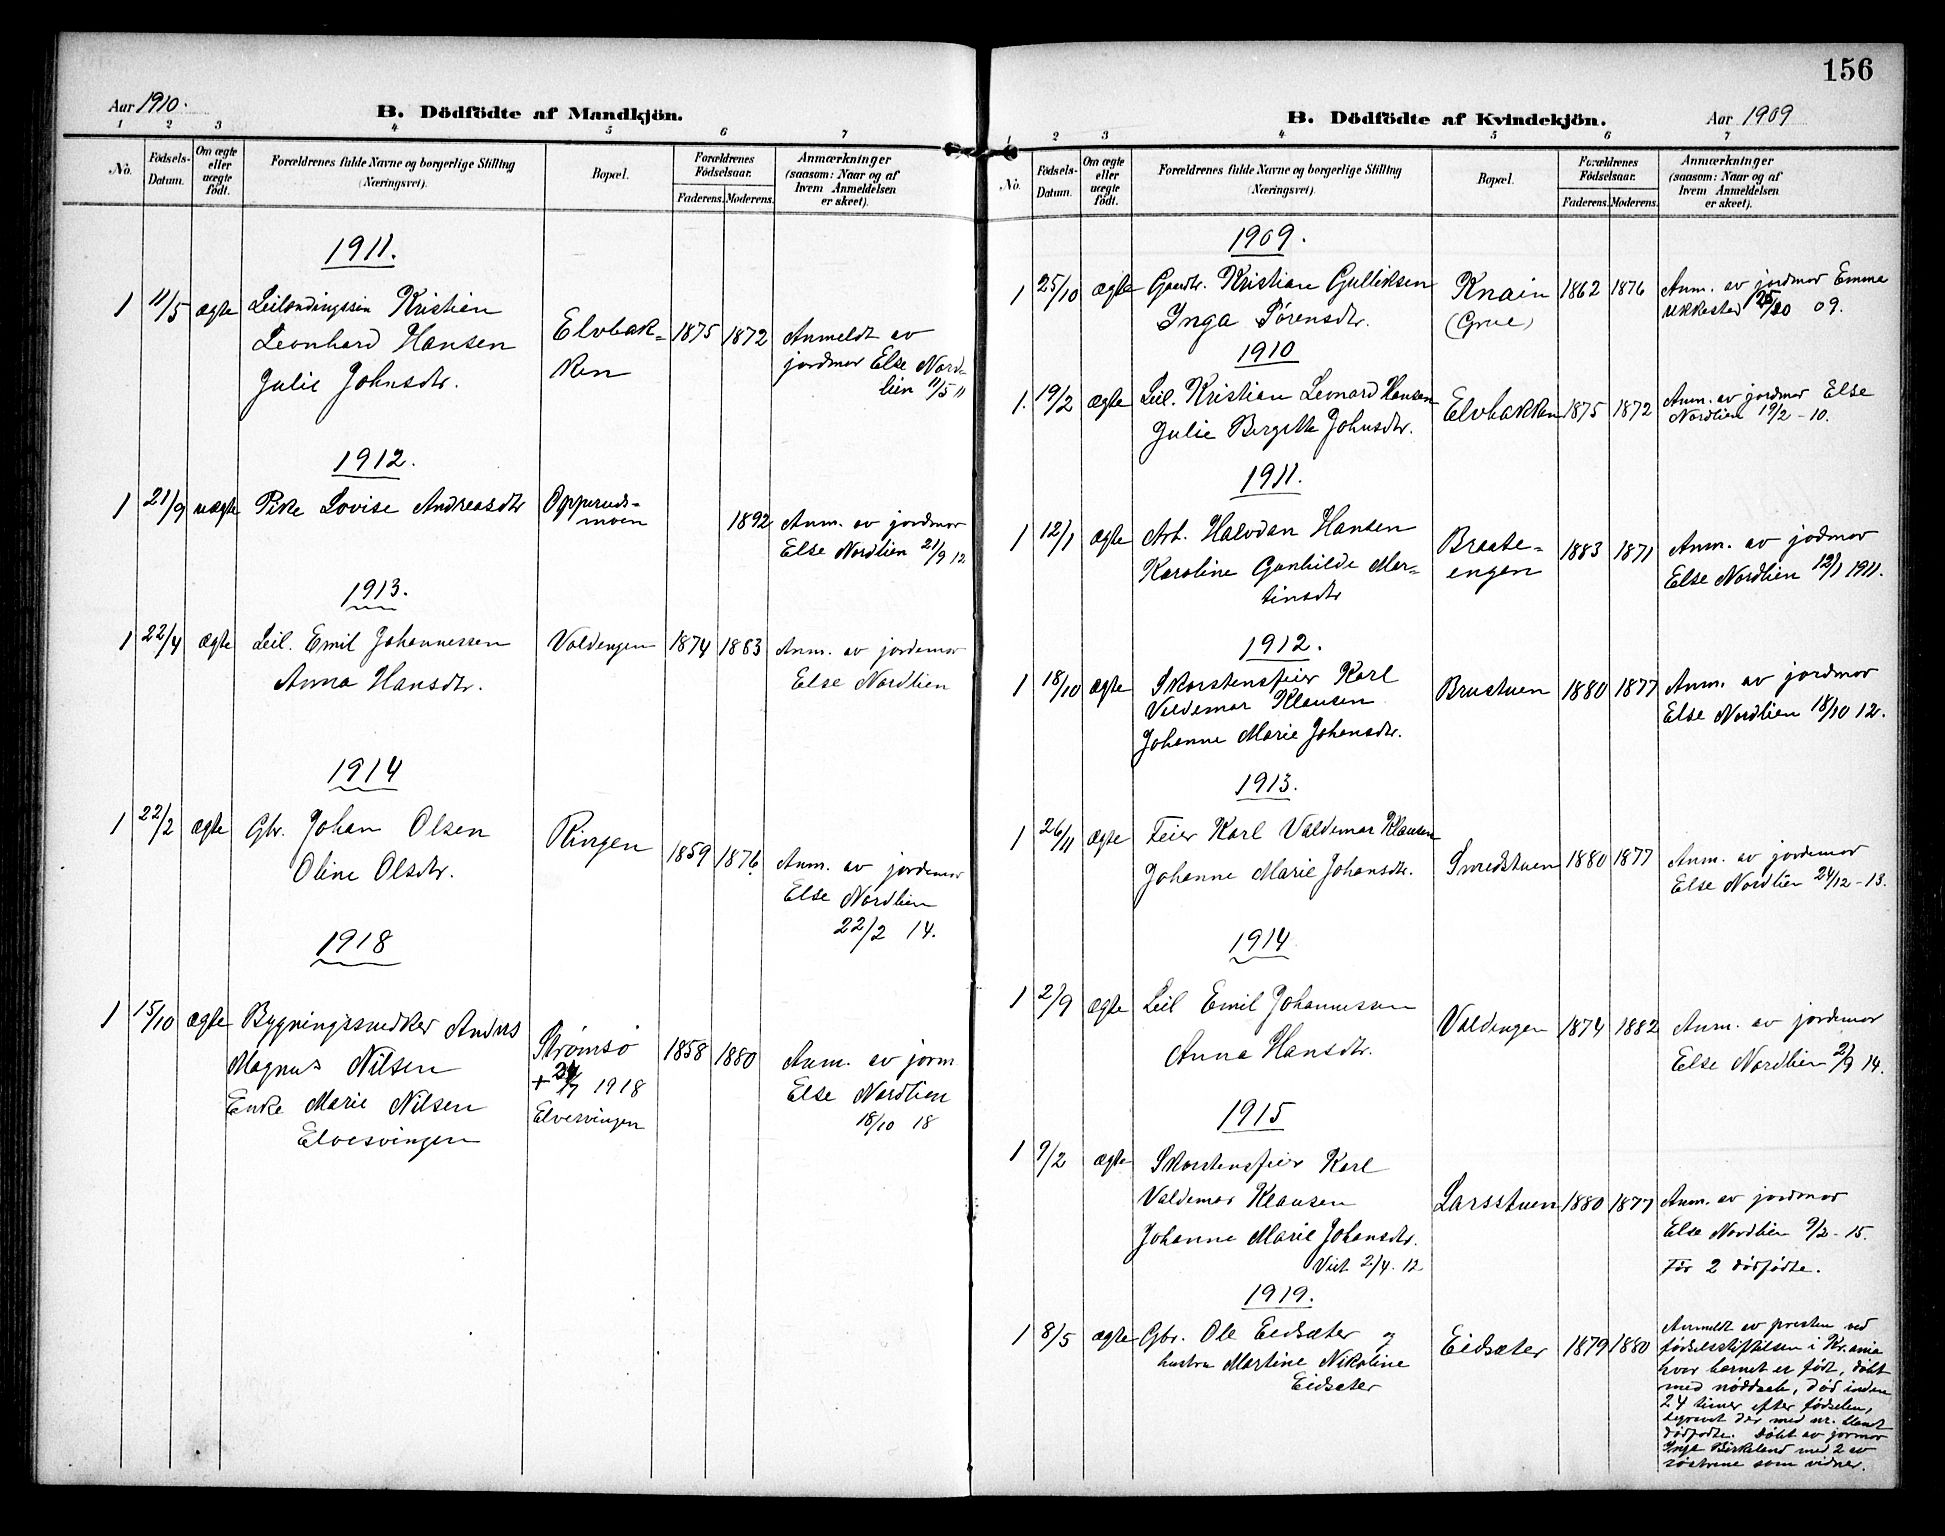 Aar 1910.
B. Dödfödte af Mandkjön.
1 2 3 4 5 6 7
No.
Födsels-Datum.
Om ægte eller uægte födt.
Forældrenes fulde Navne og borgerlige Stilling (Næringsvei).
Bopæl.
Forældrenes Födselsaar.
Faderens. Moderens.
Anmærkninger (saasom: Naar og af hvem Anmeldelsen er skeet).
1911.
1 11/5 ægte Leilændingssøn Kristian
Leonhard Hansen
Julie Johnsdtr.
Elvbak-
ken
1875 1872
Anmeldt av
jordmor Else Nord-
lien 11/5 11
1912.
1 21/9 uægte Pike Lovise Andreasdtr
Opperuds-
moen
1892
Anm. av jordmor
Else Nordlien 21/9 12
1913.
1 22/4 ægte Leil. Emil Johannessen
Anna Hansdtr.
Valdengen 1874 1883
Anm. av jordemor
Else Nordlien
1914
1 22/2 ægte Gbr. Johan Olsen
Oline Olsdtr.
Ringen
1859 1876.
Anm. av jordemor
Else Nordlien
22/2 14.
1918
1 15/10 ægte Bygningssnedker Anders
Magnus Nilsen
Enke Marie Nilsen
Elvesvingen
Strømsö
+ 24/7 1918
Elvesvingen
1858 1880
Anm. av jorm
Else Nordlien
18/10 18
156
B. Dödfödte af Kvindekjön.
Aar 1909
1 2 3 4 5 6 7
No.
Födsels-Datum.
Om ægte eller uægte födt.
Forældrenes fulde Navne og borgerlige Stilling (Næringsvei).
Bopæl.
Forældrenes Födselsaar.
Faderens. Moderens.
Anmærkninger (saasom: Naar og af hvem Anmeldelsen er skeet).
1909.
1 25/10 ægte Gaardbr. Kristian Gulliksen
Inga Sørensdtr.
Knain
(Grue)
1862 1876
Anm. av jordmor Emma
09.
1910
1. 19/2 ægte Leil. Kristian Leonard Hansen
Julie Bergitte Johnsdtr.
Elvbakken 1875 1872
Anm. av jordmor Else
Nordlien 19/2 - 10.
1911.
1 12/1 ægte Arb. Halvdan Hansen
Karoline Gunhilde Mar-
tinsdtr
Braate-
engen
1883 1871
Anm. av jodmor
Else Nordlien 12/1 1911.
1912.
1 18/10 ægte Skorstensfeier Karl
Valdemar Klausen
Johanne Marie Johansdtr.
Brustuen 1880 1877
Anm. av jordmor
Else Nordlien 18/10 12.
1913.
1 26/11 ægte Feier Karl Valdemar Klausen
Johanne Marie Johansdtr.
Smedstuen 1880 1877
Anm. av jordemor
Else Nordlien 24/12 - 13.
1914
1 2/9 ægte Leil Emil Johannessen
Anna Hansdtr.
Valdengen 1874 1882
Anm. av jordemor
Else Nordlien 2/9 14.
1915
1 9/2 ægte Skorstensfeier Karl
Valdemar Klausen
Johanne Marie Johansdtr.
Viet 2/4. 12
Larsstuen 1880 1877
Anm. av jordmor
Else Nordlien 9/2 - 15.
Før 2 dødfødte.
1919.
1 8/5 ægte Gbr. Ole Eidsæter og
hustru Martine Nikoline
Eidsæter
Eidsæter 1879 1880
Anmeldt av presten ved
fødselsstiftelsen i Kr.ania
hvor barnet er født, døbt
med nøddaab, død inden
24 timer efter fødselen,
begravet der med nr. blandt
dødfødte. Døbt av jormor
Inga Birkeland med 2 av
søstrene som vidner.